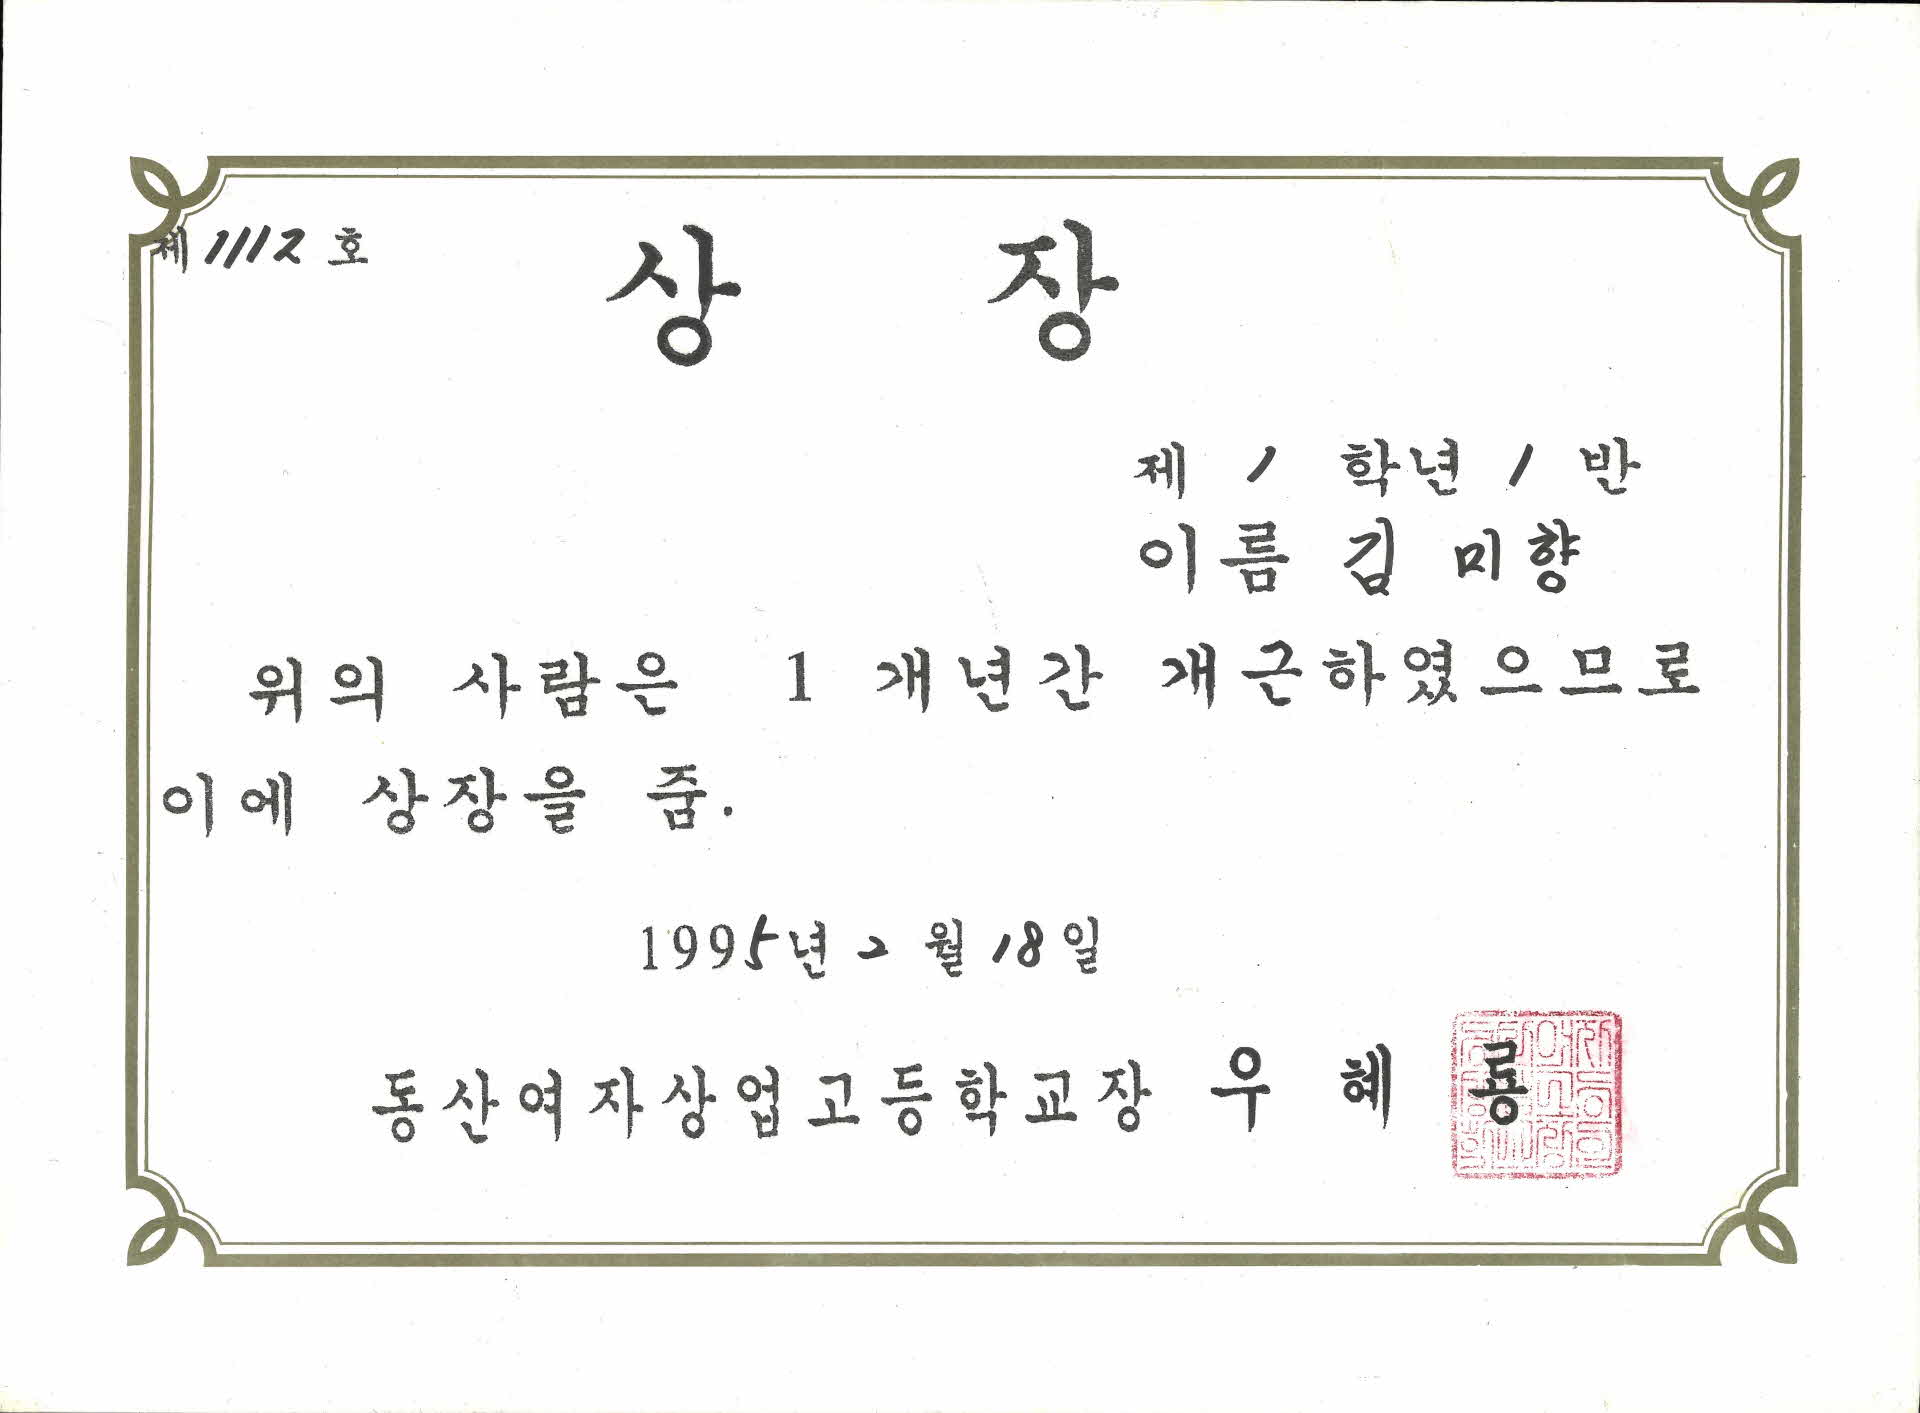 제 1112 호
상 장
제 1 학년 1 반
이름 김 미향
위의 사람은 1 개년간 개근하였으므로
이에 상장을 줌.
1995년 2 월 18일
동산여자상업고등학교장 우 혜 룡